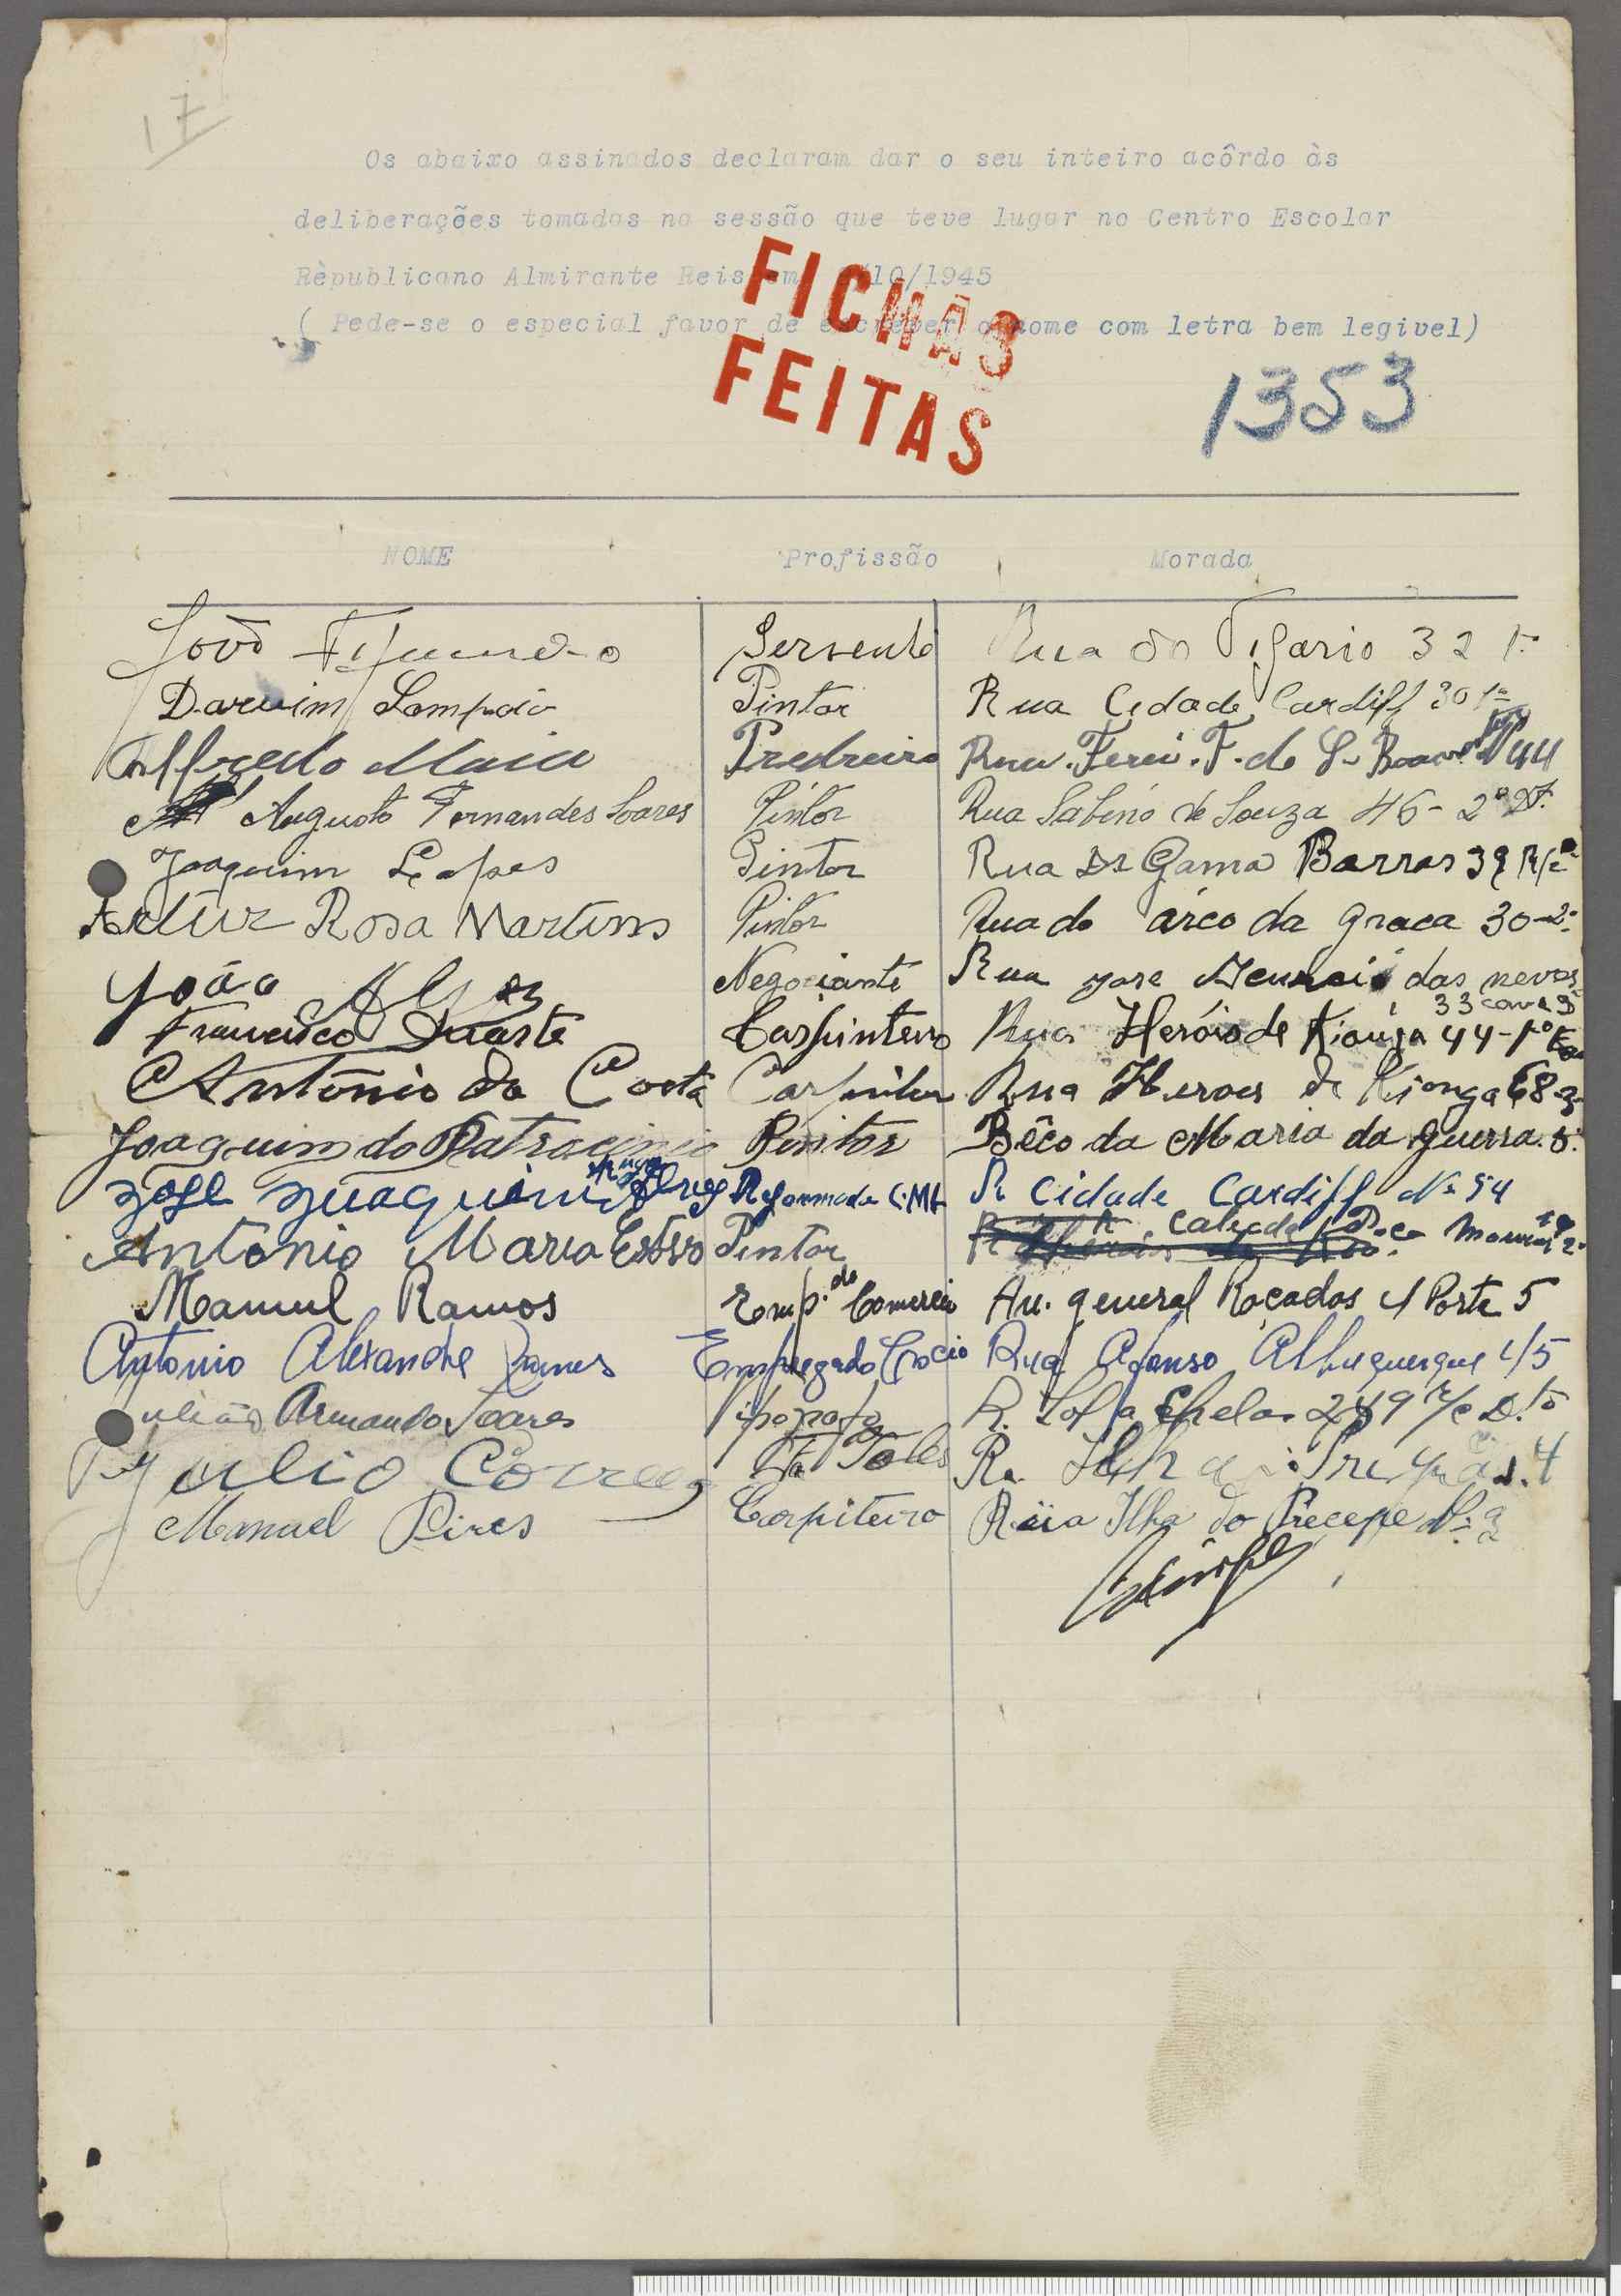 17
Os abaixo assinados declaram dar o seu inteiro acôrdo às
deliberações tomadas na sessão que teve lugar no Centro Escolar
Rèpublicano Almirante Reis em /10/1945
( Pede-se o especial favor de escrever o nome com letra bem legivel)
FICHAS
FEITAS
1353
NOME Profissão Morada
João Servente Rua do Vigario 32 1º
Darwim Sampaio Pintor Rua Cidade Cardiff 30 1º
Alfredo Maia Predreiro
Augusto Fernandes Soares Pintor Rua Sabino de Souza 46-2º Dt.
Joaquim Lopes Pintor Rua Dr Gama Barros 39 R/c
Artur Rosa Martins Pintor Rua do arco da graca 30-2º
João Alves Negociante Rua jose das neves
33 cave D
Francisco Duarte Carpinteiro Rua Heróis de Kionga 44-1º
António da Costa Rua Heroes de Kionga 68-3
Joaquim do Patrocinio Pintor Bêco da Maria da guerra.
Jose Juaquim Reformado C.M.L R Cidade Cardiff Nº 54
Antonio Maria Pintor
Manuel Ramos Emp. do Comercio Av. general Roçadas 4 Porta 5
Antonio Alexandre Ramos Empregado Crocio Rua Afonso Albuquerque 45
Julião Armando Soares R. 249 r/c D.to
Julio Correa Ra. 4
Manuel Pires Carpiteiro Rua Ilha do Precepe Nº